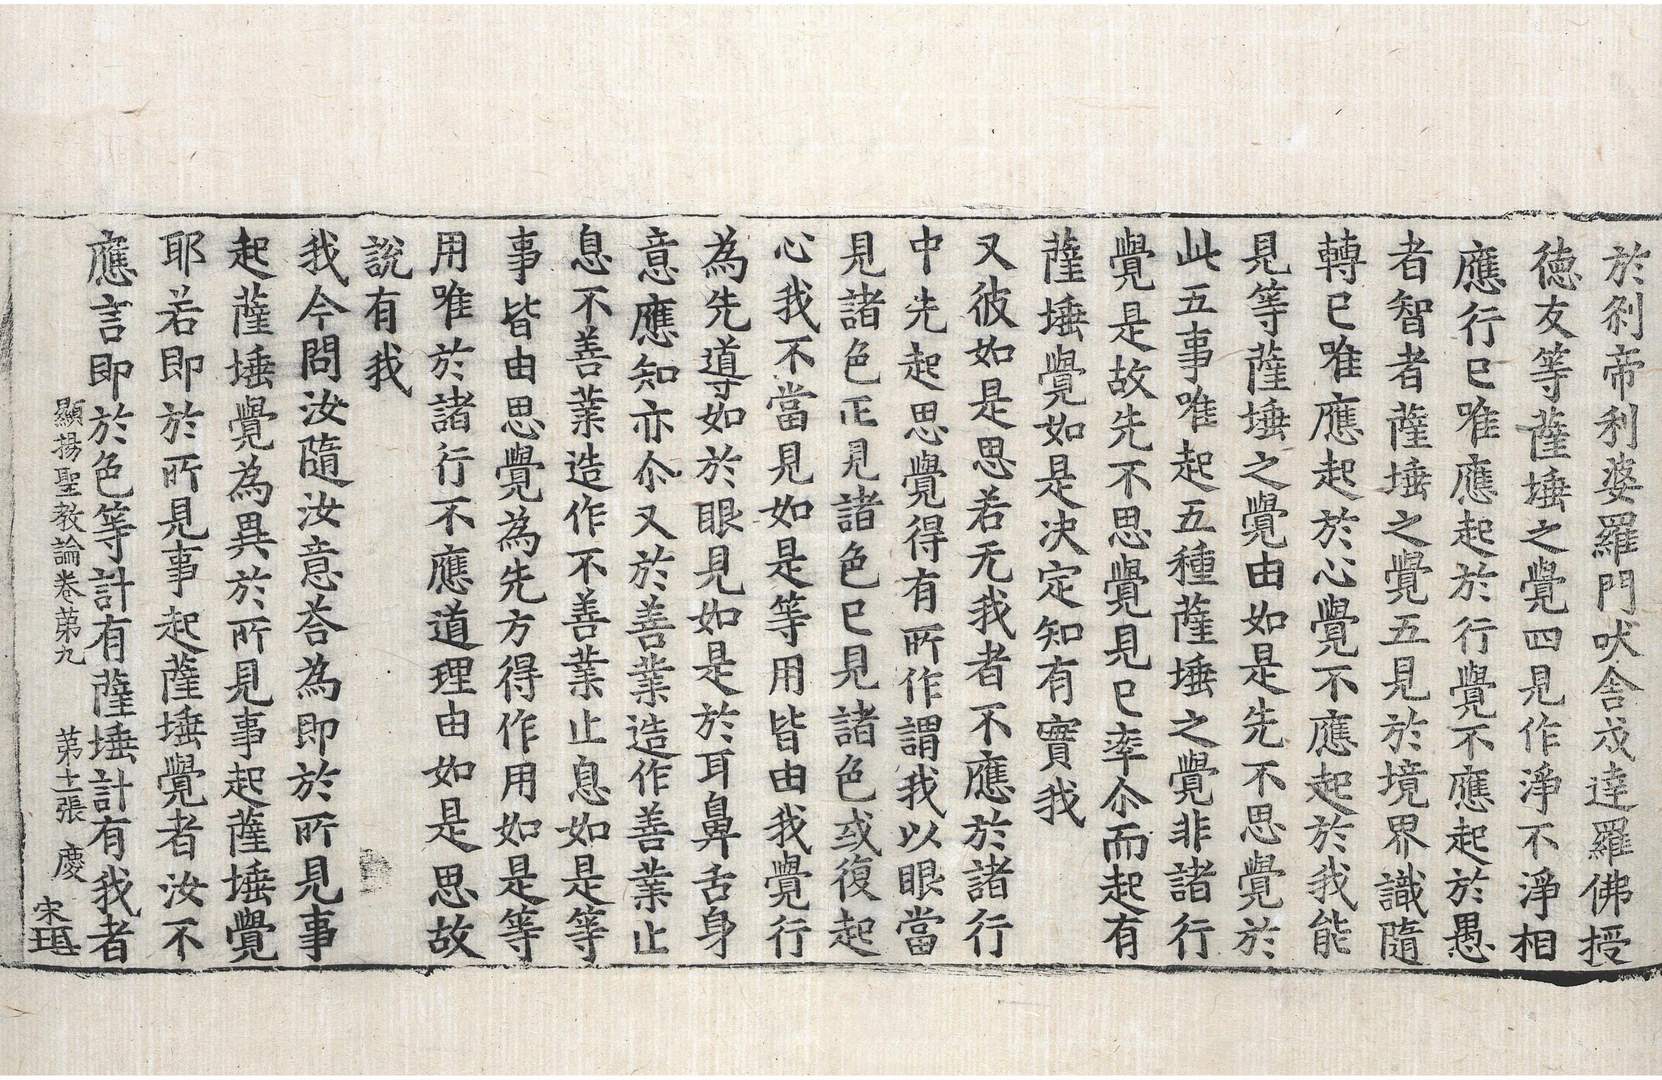 於剎帝利婆羅門吠舍戍達羅佛授
德友等薩埵之覺四見作淨不淨相
應行已唯應起於行覺不應起於愚
者智者薩埵之覺五見於境界識隨
轉已唯應起於心覺不應起於我能
見等薩埵之覺由如是先不思覺於
此五事唯起五種薩埵之覺非諸行
覺是故先不思覺見已率尒而起有
薩埵覺如是决定知有實我
又彼如是思若无我者不應於諸行
中先起思覺得有所作謂我以眼當
見諸色正見諸色已見諸色或復起
心我不當見如是等用皆由我覺行
為先導如於眼見如是於耳鼻舌身
意應知亦尒又於善業造作善業止
息不善業造作不善業止息如是等
事皆由思覺為先方得作用如是等
用唯於諸行不應道理由如是思故
說有我
我今問汝隨汝意荅為即於所見事
起薩埵覺為異於所見事起薩埵覺
耶若即於所見事起薩埵覺者汝不
應言即於色等計有薩埵計有我者
顯揚聖教論卷苐九 苐十二張 慶
宋琪